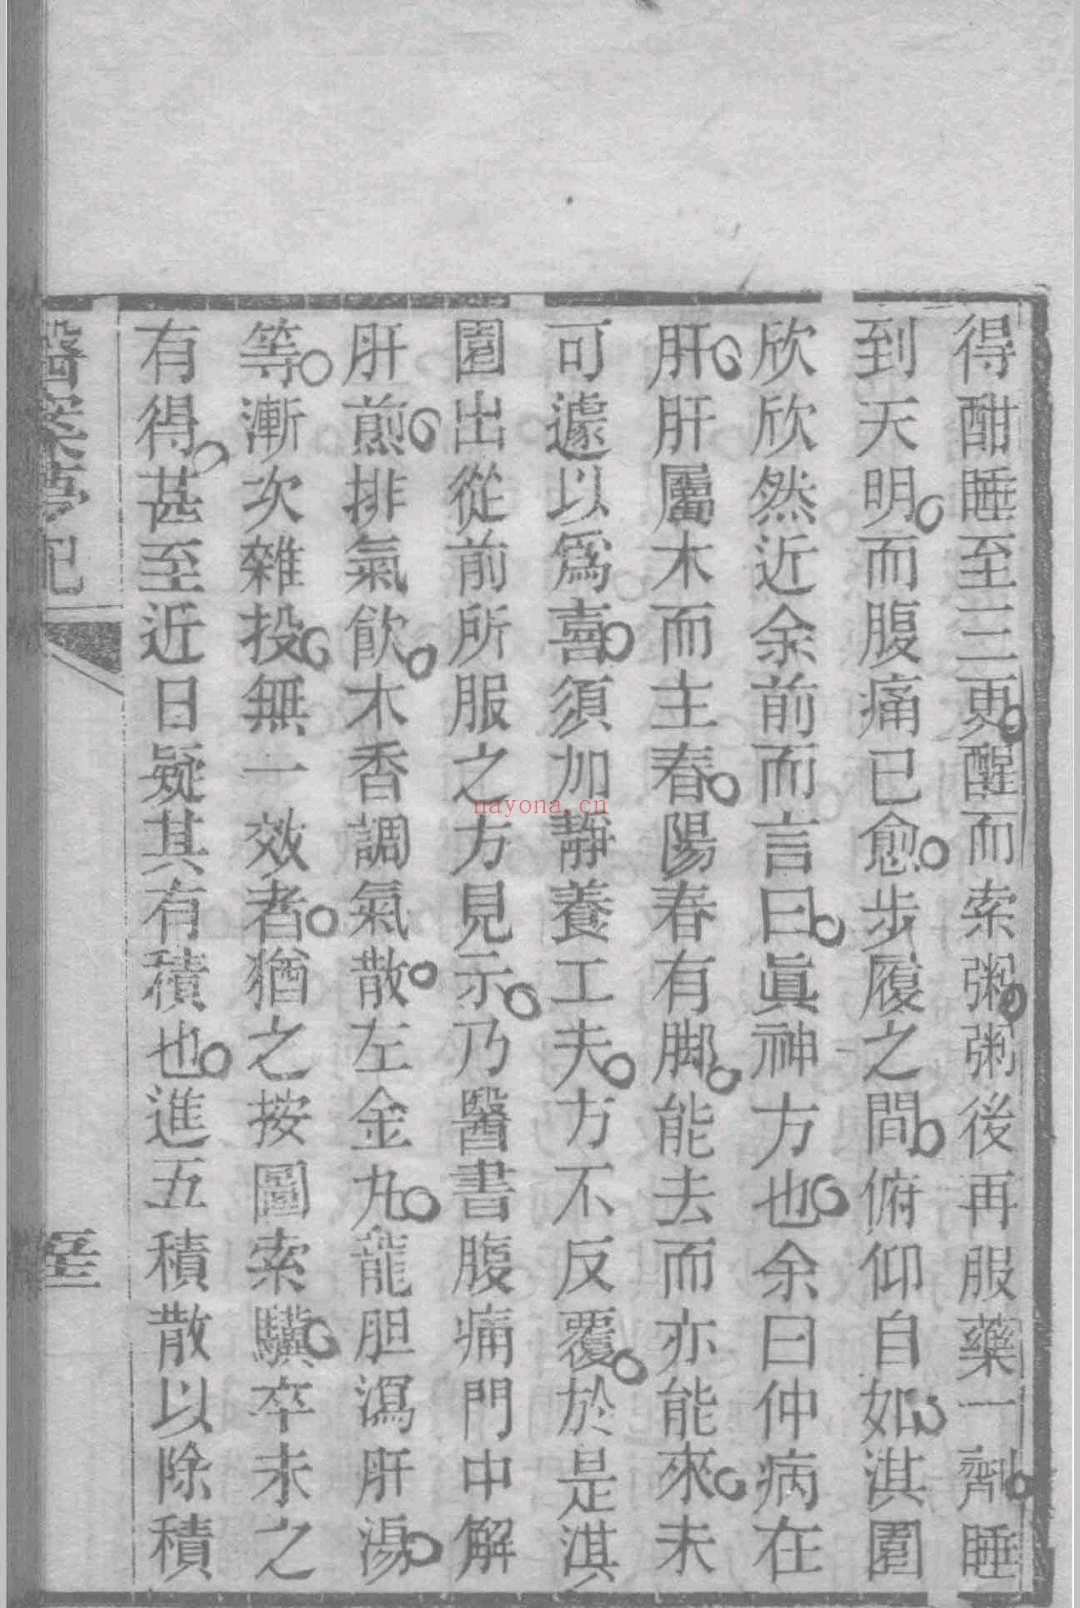 得酣睡至三更醒而索粥粥後再服藥一劑睡
到天明而腹痛已愈步履之間俯仰自如淇園
欣欣然近余前而言曰眞神方也余曰仲病在
肝肝屬木而主春陽春有脚能去而亦能來未
可遽以爲喜須加靜養工夫方不反覆於是淇
園出從前所服之方見示乃醫書腹痛門中解
肝煎排氣飮木香調氣散左金丸龍胆瀉肝湯
等漸次雜投無一效者猶之按圖索驥卒未之
有得甚至近日疑其有積也進五積散以除積
醫案夢記
nayona.cn